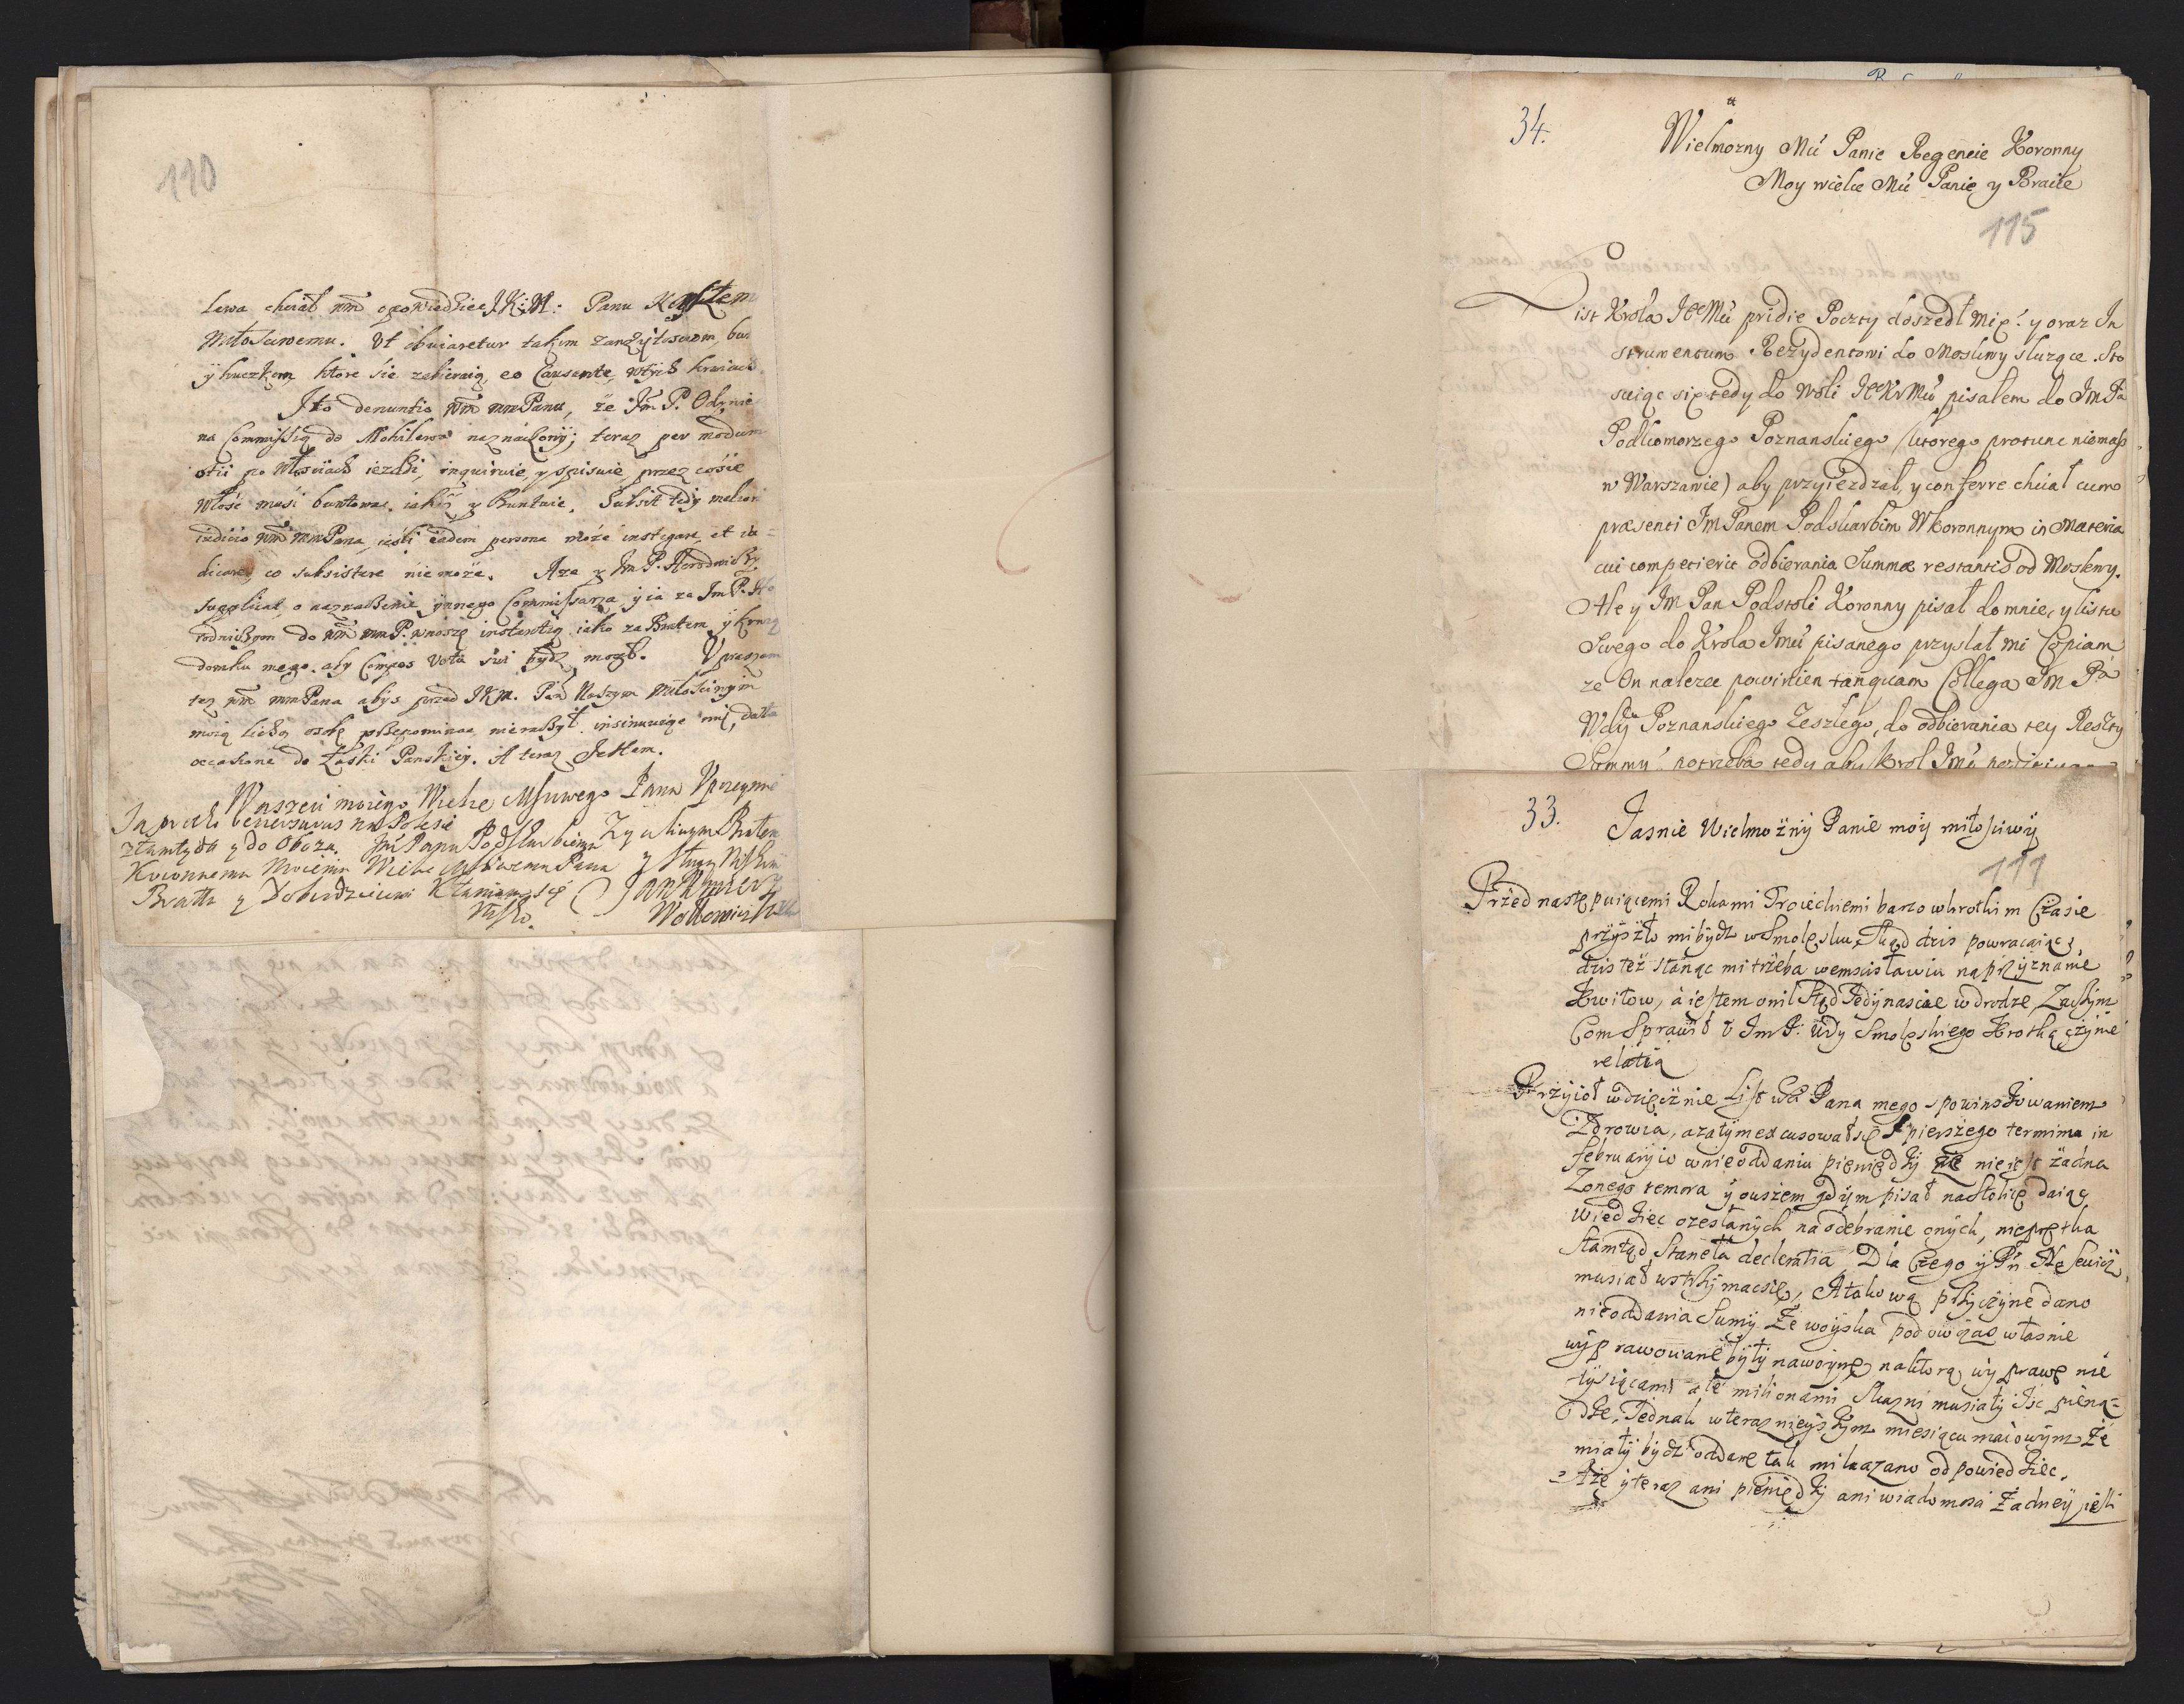 110
lewa chciał wm̃ opowiedziec J.K.M: Panu
Miłosciwemu. Ut obviaretur takim
ÿ huczkom ktore się zabieraią, eo Causante, wtych kraiach
Ito denuntio wm̃ mmPanu, że Jm̃ P. Odynie
na Commissią do Mohilewa naznaczony; teraz per modum
otii po włosciach iezdzi, inquiruie, y spisuie, przez co sie
włość musi buntować, iakosz y Buntuie. Subsit tedy
iudicio wm̃ mmPana, iesli eadem persona może instigare, et iu=
dicare, co subsistere nie może. A ze y Jm P.
supplicat, o naznaczenie ÿnnego Commissarza ÿ ia za Jm P.
do wm̃ mmP. wnoszę instantią iako za Bratem ÿ
domku mego. aby Compos voti sui bydz mogł. Upraszam
tez wm̃ mmPana abys przed JKM. Pan Naszym Miłosciwym
moią lichą osobę przepominac nieraczył. insinuuiąc mię, data
occasione do Łaski Panskiey. A teraz Jestem.
Waszeci moiego Wielce Msciwego Pana Uprzeymie
Zyczliwym Bratem
y sługą Niskim
Bratu y Dobrodzieiowi Kłaniam się
Nisko.
34.
Wielmozny Mċi Panie Regencie Koronny
Moy wielce Mċi Panie y Bracie
115
List Krola JeoMċi pridie Poczty doszedł mię: y oraz In
strumentum Rezydentowi do Moskwy sluzące. Sto
suiąc się tedy do woli JeoKrMċi pisałem do Jm Pa
Podkomorzego Poznanskiego (ktorego protunc niemasz
w Warszawie) aby przyiezdzał, y conferre chciał cum
præsenti Jm Panem Podskarbim WKoronnym in Materia
cui competierit odbierania Summæ restantis od Moskwy.
Ale y Jm Pan Podstoli Koronny pisał do mnie, y listu
Swego do Krola Jmċi pisanego przysłał mi Copiam
ze On nalezec powinien tanquam Collega Jm Pa
Wdy Poznanskiego Zeszłego, do odbierania tey Reszty
Summy: potrzeba tedy aby Krol Jmċi
33.
Jasnie Wielmożnÿ Panie moÿ miłosciwÿ
111
Przed nastę puiącemi Rokami Troieckiemi barzo wkrotkim Czasie
przÿszło mi bÿdz wSmolęsku, Skąd dzis powracaiąc,
dzis też stanąc mi trżeba wemscisławiu na przÿznanie
Kwitow, à iestem onil Stąd Jedÿnascie wdrodze, Zaczÿm
Com Sprawił v Jm P: Wdy Smolęskiego Krotką czÿnie
relatią
Przÿioł wdzięcznie List wċi Pana mego s powinszowaniem
Zdrowia, azatÿm excusował się Z pierszego termima in
februarÿio wnieoddaniu pieniędzÿ że nie iest żadna
Zonego remora ÿ ouszem gdÿm pisał na Stolicę daiąc
wiedziec ozesłanÿch na odebranie onÿch, nieprętka
stamtąd staneła decleratia, Dla Czego ÿ Pn
musiał wstrzÿmac się, Atakową przÿczÿne dano
nieoddania Sumÿ Że woÿska podowczas własnie
wÿprawowane bÿłÿ nawoÿnę na ktorą wÿprawę nie
tÿsiącami ale milionami Skazni musiałÿ Jsc pienią=
dze, Jednak wteraznieÿszÿm miesiącu maiowÿm że
miałÿ bÿdz oddane tak mi kazano odpowiedziec.
Aże ÿ teraz ani pieniędzÿ ani wiadomosci żadneÿ jesli